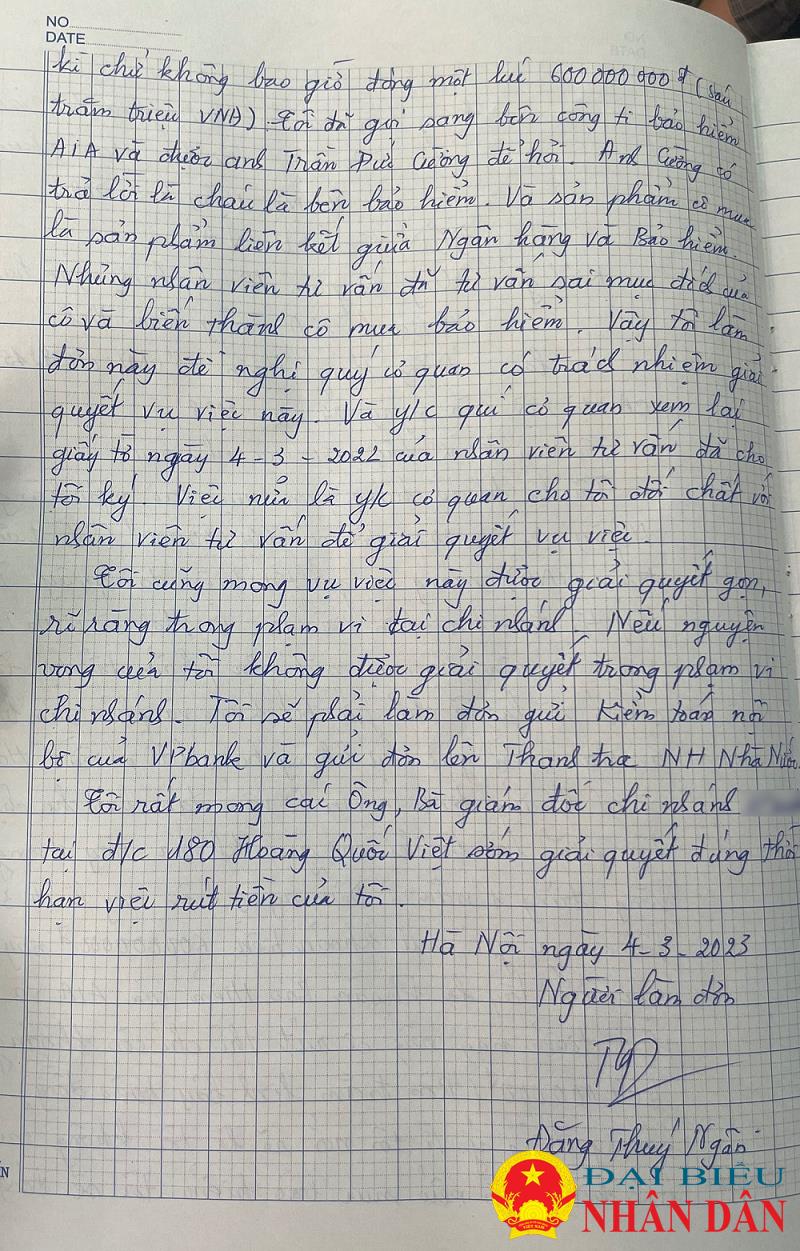 NO
DATE
kì chứ không bao giờ đóng một lúc 600 000 000đ (sáu
trăm triệu VNĐ). Tôi đã gọi sang bên công ti bảo hiểm
AIA và được anh Trần Đức Cường để hỏi. Anh Cường có
trả lời là cháu là bên bảo hiểm. Và sản phẩm cô mua
là sản phẩm liên kết giữa Ngân hàng và Bảo hiểm.
Những nhân viên tư vấn đã tư vấn sai mục đích của
cô và biến thành cô mua bảo hiểm. Vậy tôi làm
đơn này đề nghị quý cơ quan có trách nhiệm giải
quyết vụ việc này. Và y/c quí cơ quan xem lại
giấy tờ ngày 4-3-2022 của nhân viên tư vấn đã cho
tôi ký. Việc nữa là y/c cơ quan cho tôi đối chất với
nhân viên tư vấn để giải quyết vụ việc.
Tôi cũng mong vụ việc này được giải quyết gọn,
rõ ràng trong phạm vi tại chi nhánh. Nếu nguyện
vọng của tôi không được giải quyết trong phạm vi
chi nhánh. Tôi sẽ phải làm đơn gửi Kiểm toán nội
bộ của VPbank và gửi đơn lên Thanh tra NH Nhà Nước.
Tôi rất mong các Ông, Bà giám đốc chi nhánh
tại đ/c 180 Hoàng Quốc Việt sớm giải quyết đúng thời
hạn việc rút tiền của tôi.
Hà Nội ngày 4-3-2023
Người làm đơn
Đặng Thuý Ngân
ĐẠI BIỂU
NHÂN DÂN